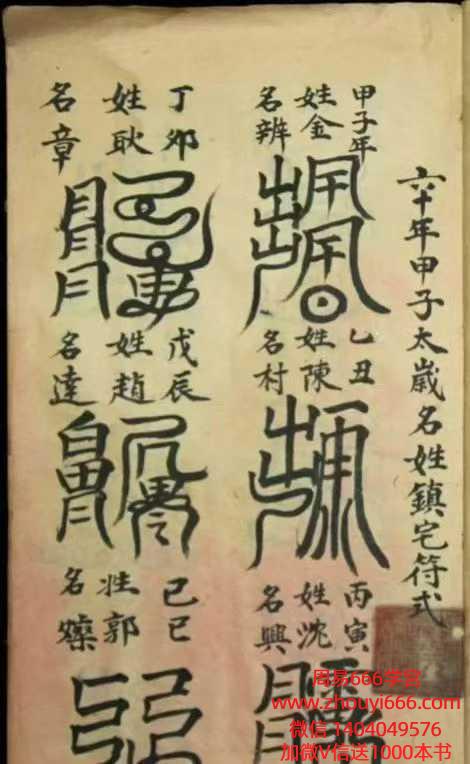 六十年甲子太歲名姓鎮宅符式
甲子年
姓金
名辨
乙丑
姓陳
名村
丙寅
姓沈
名興
丁卯
姓耿
名章
戊辰
姓趙
名達
己巳
姓郭
名燦
周易666学宫
www.zhouyi666.com
微信 1404049576
加微V信送1000本书